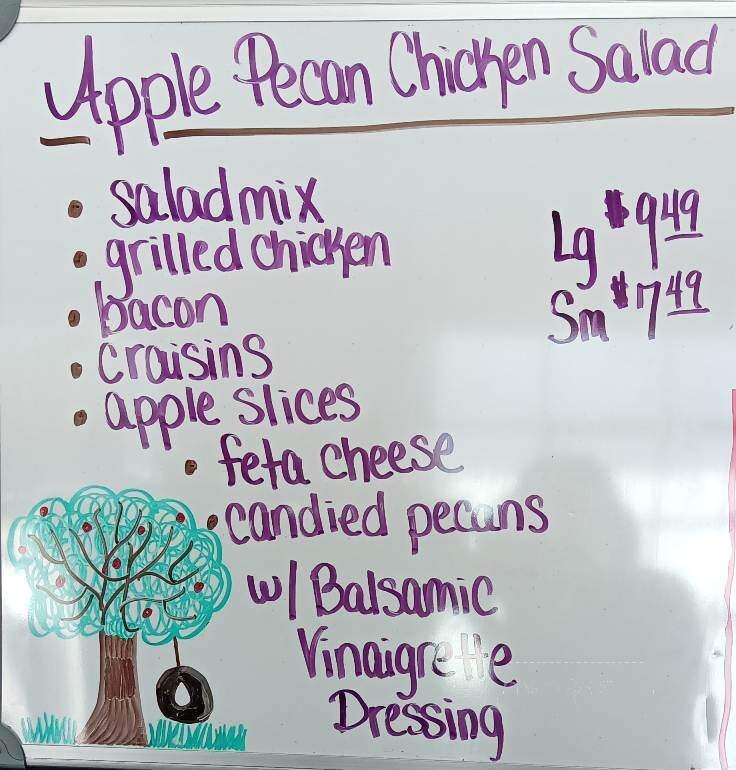 Apple Pecan Chicken Salad
• salad mix
• grilled chicken
• bacon
• craisins
• apple slices
• feta cheese
• candied pecans
w/ Balsamic
Vinaigrette
Dressing
Lg $9.49
Sm $7.49